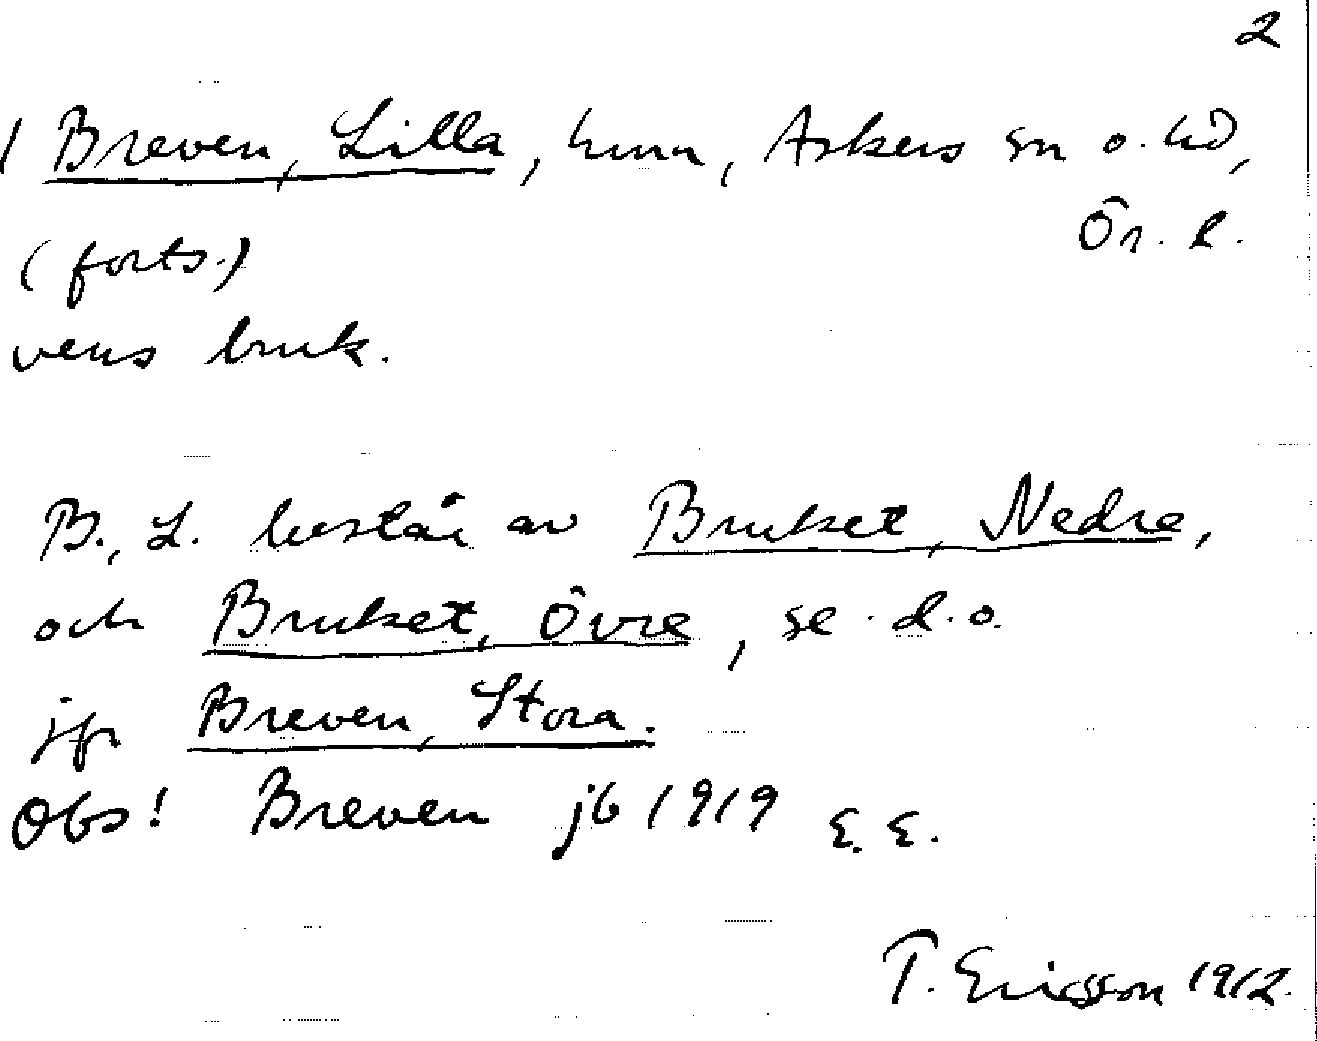 2
1 Breven, Lilla, hmn, Askers sn o. hd,
Ör. l.
(forts.)
vens bruk.
B., L. består av Bruket, Nedre,
och Bruket, Övre, se d.o.
jfr Breven, Stora.
Obs! Breven jb 1919 E. E.
T. Ericsson 1912.